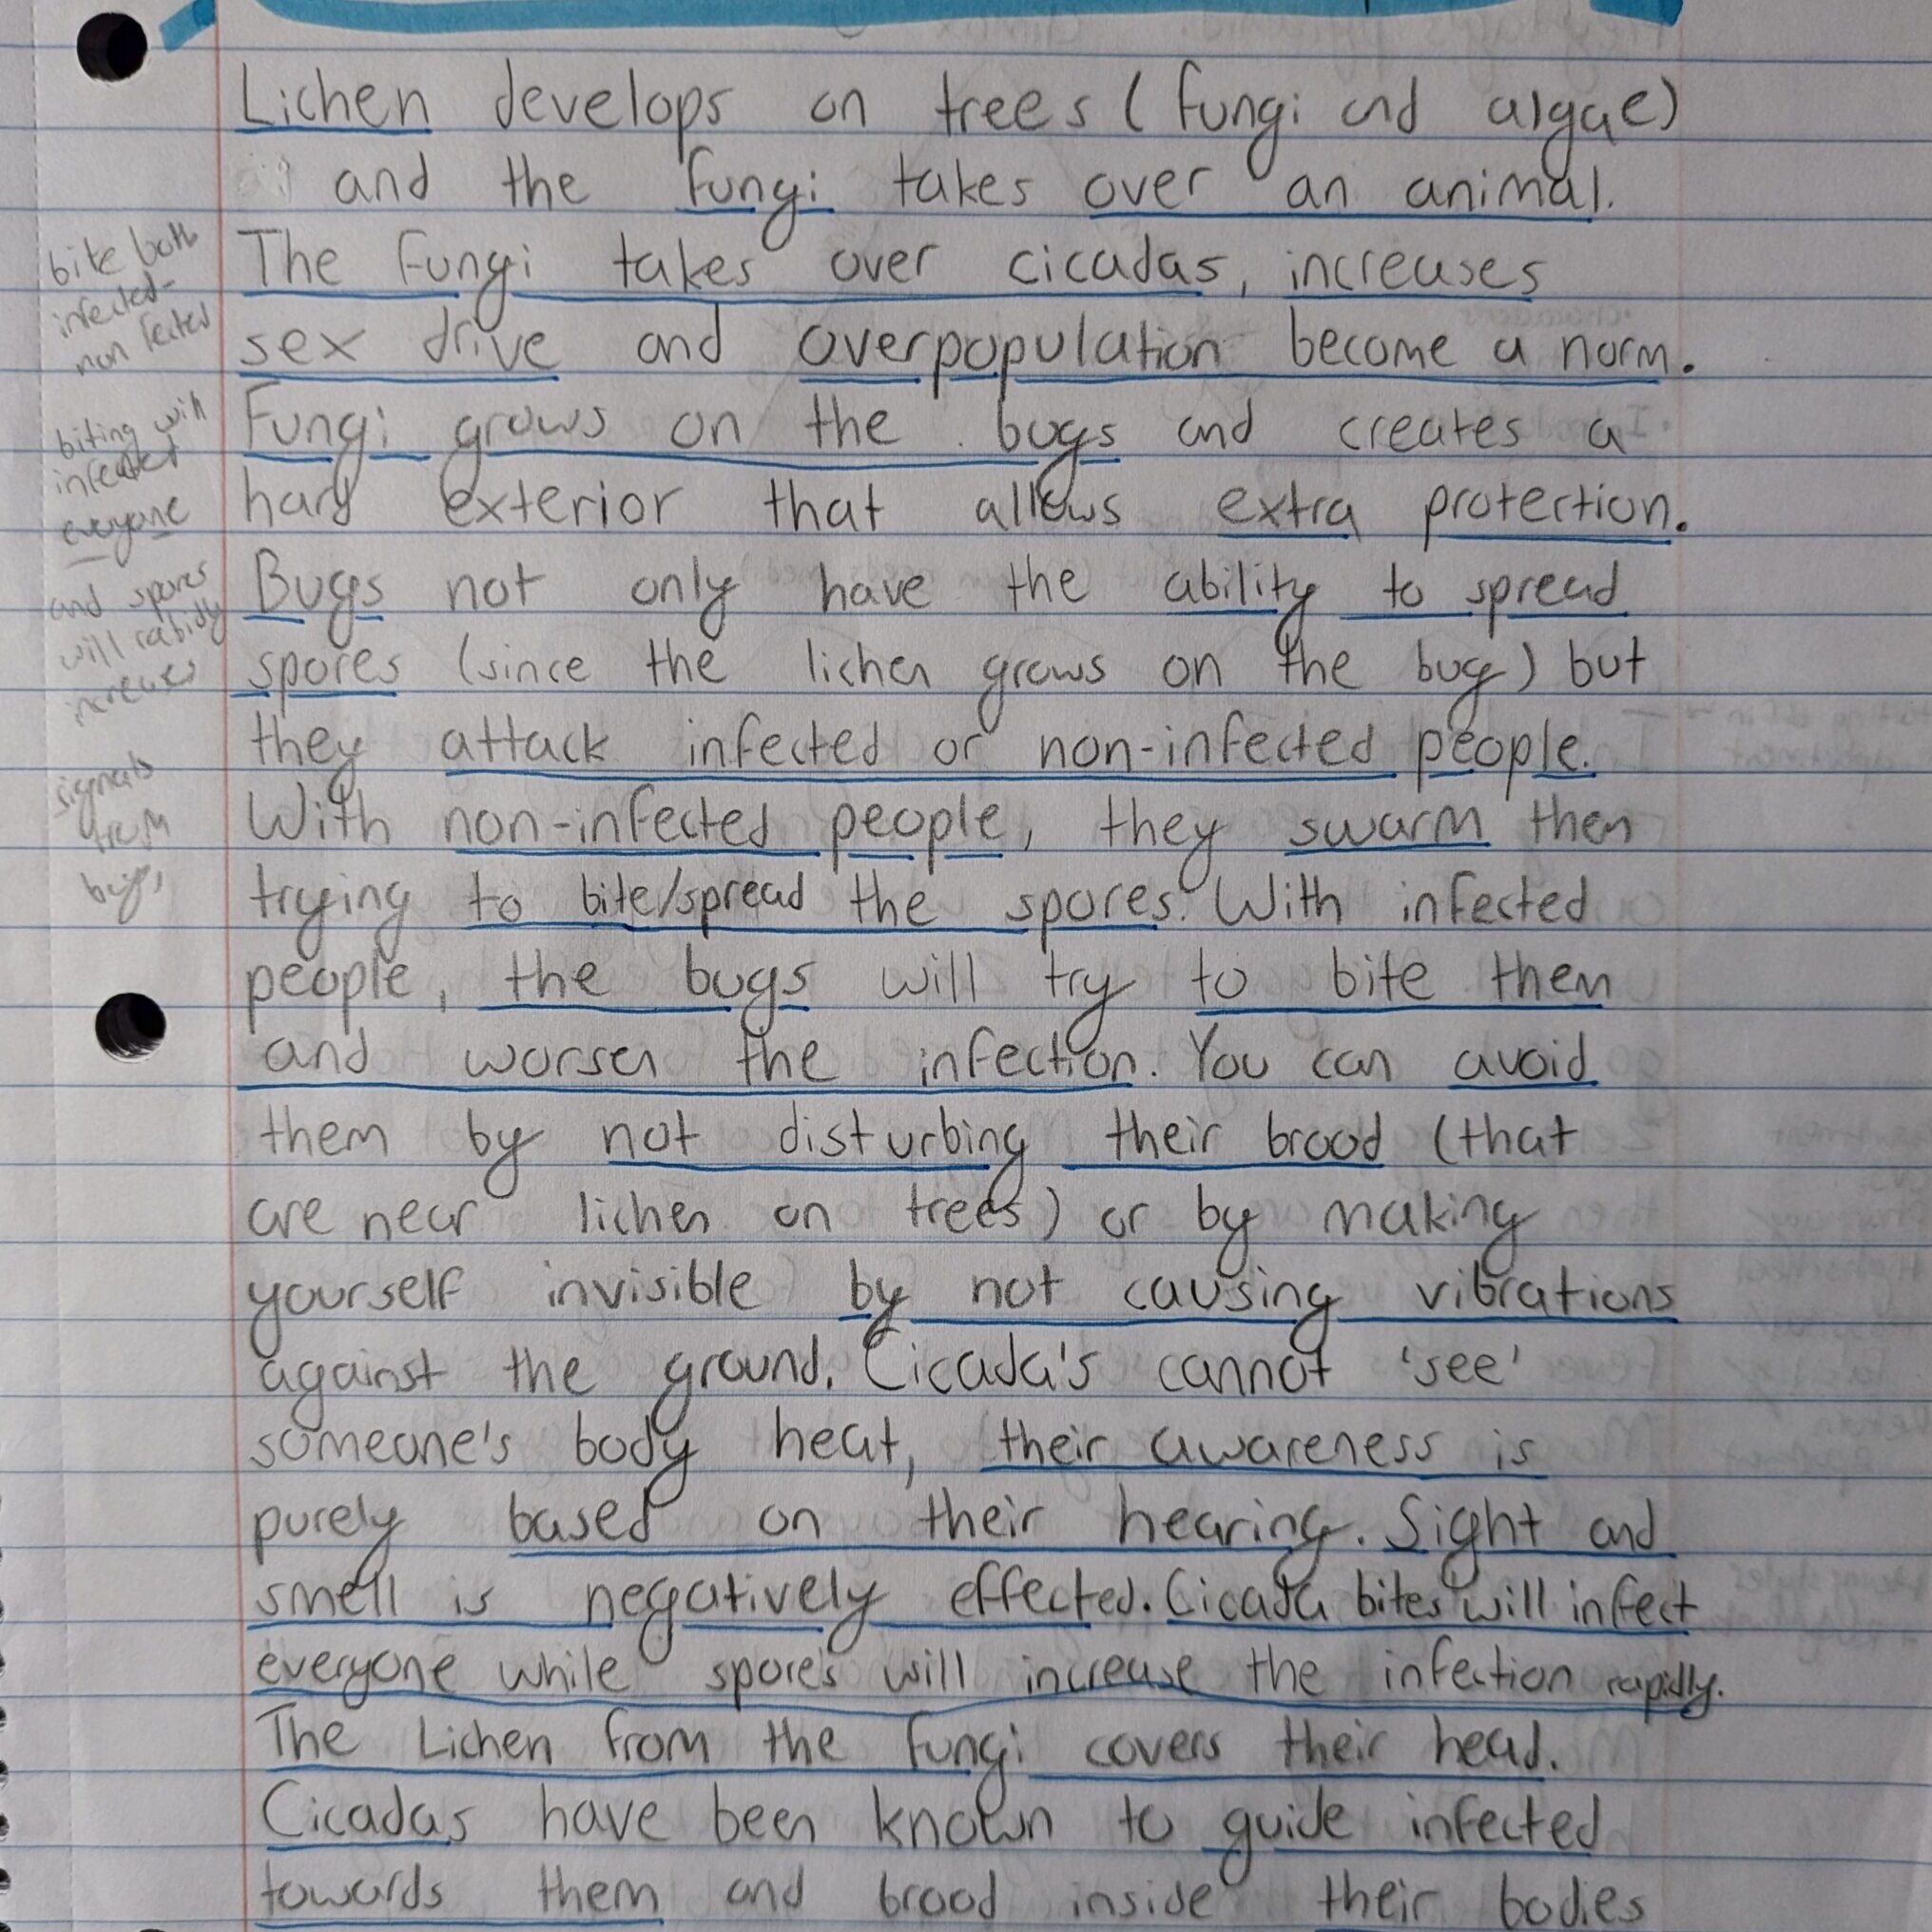 Lichen develops on trees (fungi and algae)
and the fungi takes over an animal.
The fungi takes over cicadas, increases
sex drive and overpopulation become a norm.
Fungi grows on the bugs and creates a
hard exterior that allows extra protection.
Bugs not only have the ability to spread
spores (since the lichen grows on the bug) but
they attack infected or non-infected people.
With non-infected people, they swarm them
trying to bite/spread the spores. With infected
people, the bugs will try to bite them
and worsen the infection. You can avoid
them by not disturbing their brood (that
are near lichen on trees) or by making
yourself invisible by not causing vibrations
against the ground. Cicada's cannot 'see'
someone's body heat, their awareness is
purely based on their hearing. Sight and
smell is negatively effected. Cicada bites will infect
everyone while spores will increase the infection rapidly.
The Lichen from the fungi covers their head.
Cicadas have been known to guide infected
towards them and brood inside their bodies
bite both
infected-
non fected
biting will
infected
everyone
and spores
will rabidly
increases
signals
from
bugs